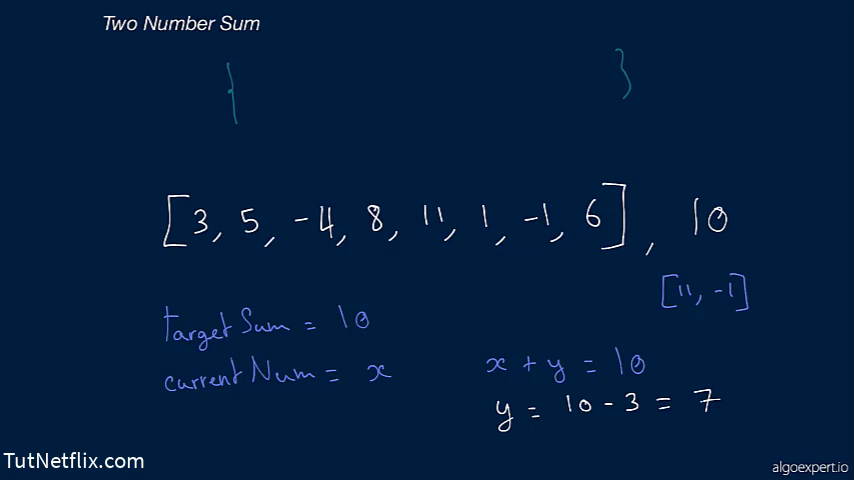 Two Number Sum
{ }
[3, 5, -4, 8, 11, 1, -1, 6], 10
[11, -1]
targetSum = 10
currentNum = x
x + y = 10
y = 10 - 3 = 7
TutNetflix.com
algoexpert.io